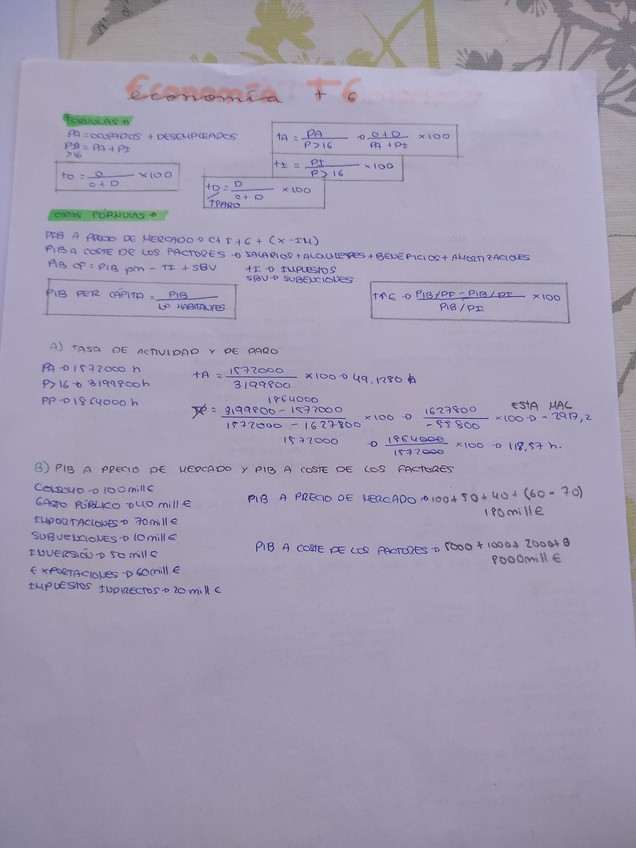 economía T 6
FÓRMULAS →
PA = OCUPADOS + DESEMPLEADOS
P>16 = PA + PI
tA = PA / P>16 → O+D / PA + PI × 100
tI = PI / P>16 × 100
tO = O / O + D × 100
tD = D / O + D × 100
↑PARO
OTRAS FÓRMULAS →
PIB A PRECIO DE MERCADO → C + I + G + (X - IM)
PIB A COSTE DE LOS FACTORES → SALARIOS + ALQUILERES + BENEFICIOS + AMORTIZACIONES
PIB cf = PIB pm - TI + SBV
tI → IMPUESTOS
SBV → SUBENCIONES
PIB PER CÁPITA = PIB / Nº HABITANTES
→ PIB/PF - PIB/PI / PIB/PI × 100
A) TASA DE ACTIVIDAD Y DE PARO
PA → 1572000 h
P>16 → 3199800 h
PP → 1864000 h
tA = 1572000 / 3199800 × 100 → 49,1280 h
1864000
= 3199800 - 1572000 / 1572000 - 1627800 × 100 → 1627800 / -55800 × 100 → - 2917,2
ESTA MAL
1572000
→ 1864000 / 1572000 × 100 → 118,57 h.
B) PIB A PRECIO DE MERCADO Y PIB A COSTE DE LOS FACTORES
CONSUMO → 100 mill €
GASTO PÚBLICO → 40 mill €
IMPORTACIONES → 70 mill €
SUBVENCIONES → 10 mill €
INVERSIÓN → 50 mill €
EXPORTACIONES → 60 mill €
IMPUESTOS INDIRECTOS → 20 mill €
PIB A PRECIO DE MERCADO → 100 + 50 + 40 + (60 - 70)
180 mill €
PIB A COSTE DE LOS FACTORES → 5000 + 1000 + 2000 + 0
8000 mill €